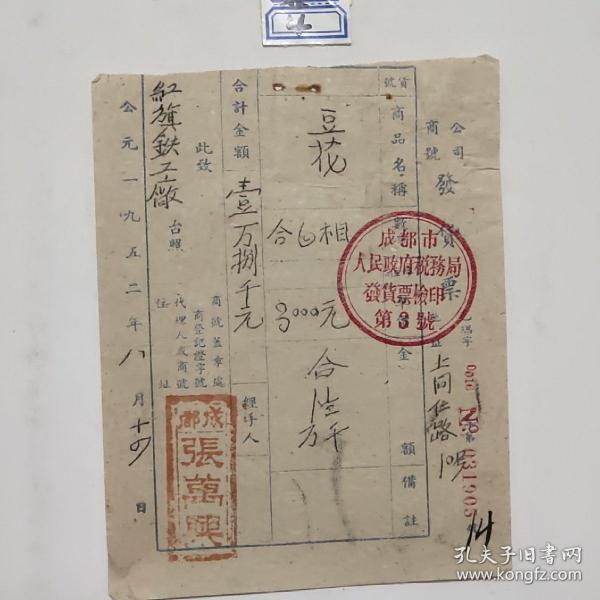 公司
商號
發貨票
上同仁路
№ 031905
14
貨號
商品名稱
金額
備註
豆花
3000元
合計金額
壹万捌千元
經手人
此致
紅旗鉄工廠 台照
商號蓋章處
商登記證字號
代理人或商號
住址
公元一九五二年八月十四日
成都市
人民政府稅務局
發貨票檢印
第3號
成都
張萬興
孔夫子旧书网
www.kongfz.com